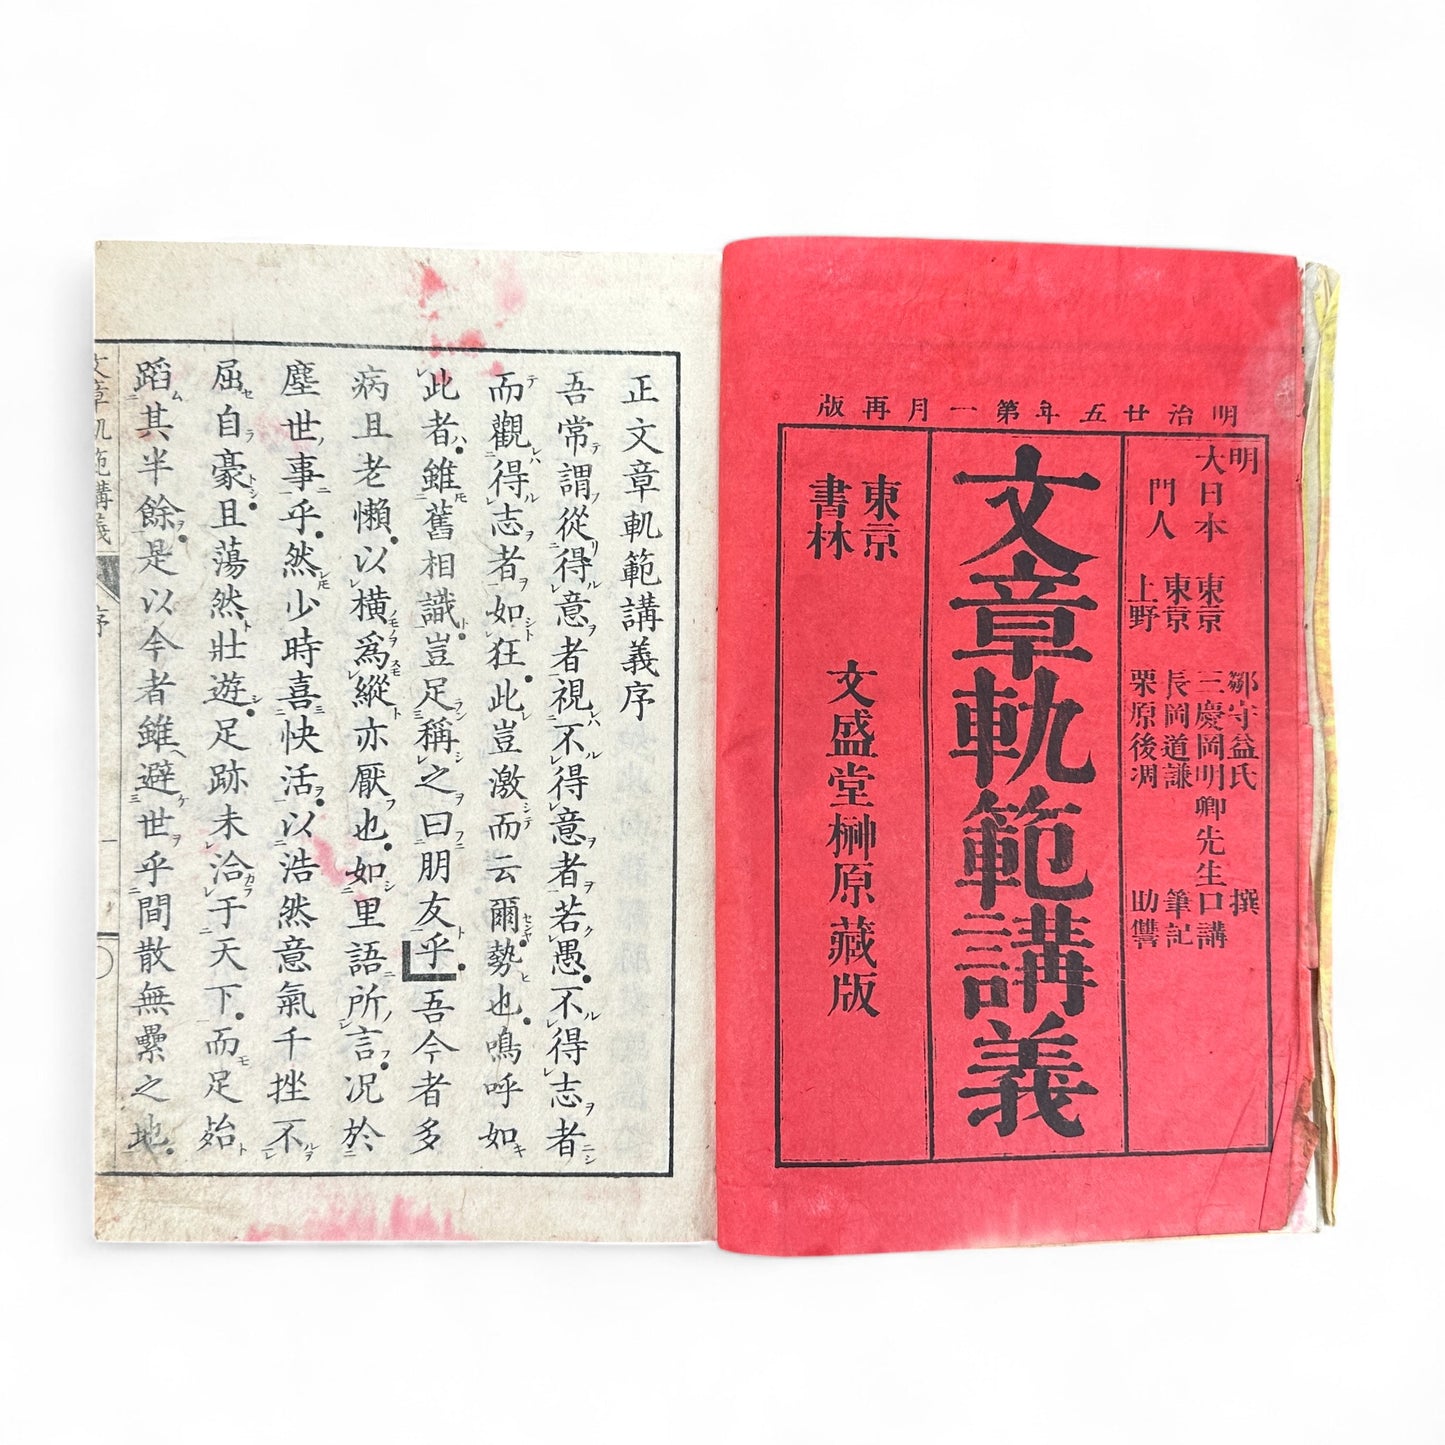 明治廿五年第一月再版
明 鄒守益氏 撰
大日本 東京 三慶岡明卿先生口講
門人 東京 長岡道謙 筆記
上野 栗原後凋 助讐
文章軌範講義
東京書林 文盛堂榊原藏版
正文章軌範講義序
吾常謂從得意者視不得意者若愚不得志者
而觀得志者如狂此豈激而云爾勢也嗚呼如
此者雖舊相識豈足稱之曰朋友乎吾今者多
病且老懶以橫爲縱亦厭也如里語所言况於
塵世事乎然少時喜快活以浩然意氣千挫不
屈自豪且蕩然壯遊足跡未洽于天下而足殆
蹈其半餘是以今者雖避世乎間散無纍之地
文章軌範講義 序 一